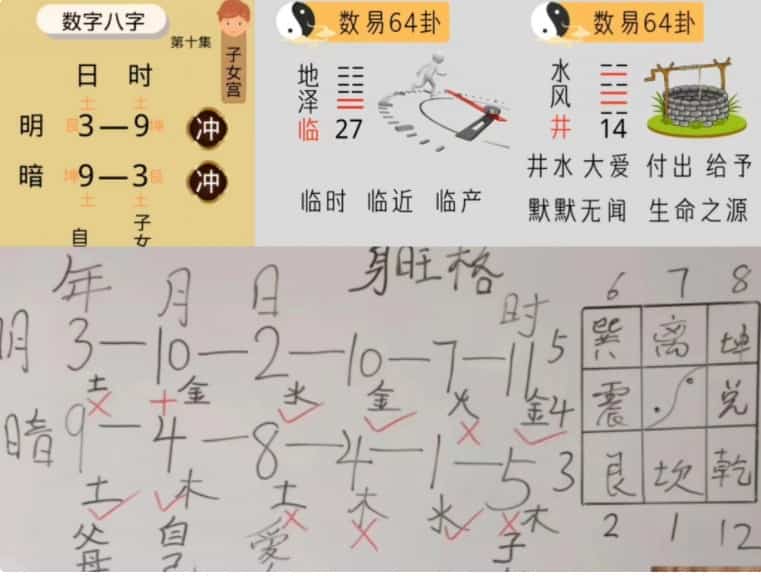 数字八字
第十集
子女宫
日 时
土 土
明 艮3—9坤 冲
暗 坤9—3艮 冲
土 土
自 子女
数易64卦
地泽临
27
临时 临近 临产
数易64卦
水风井
14
井水 大爱 付出 给予
默默无闻 生命之源
身旺格
年 月 日 时
明 3—10—2—10—7—11
土 金 水 金 火 金
暗 9—4—8—4—1—5
土 木 土 木 水 木
父母 自己 爱 子
6 7 8
5 巽 离 坤
4 震 兑
3 艮 坎 乾
2 1 12